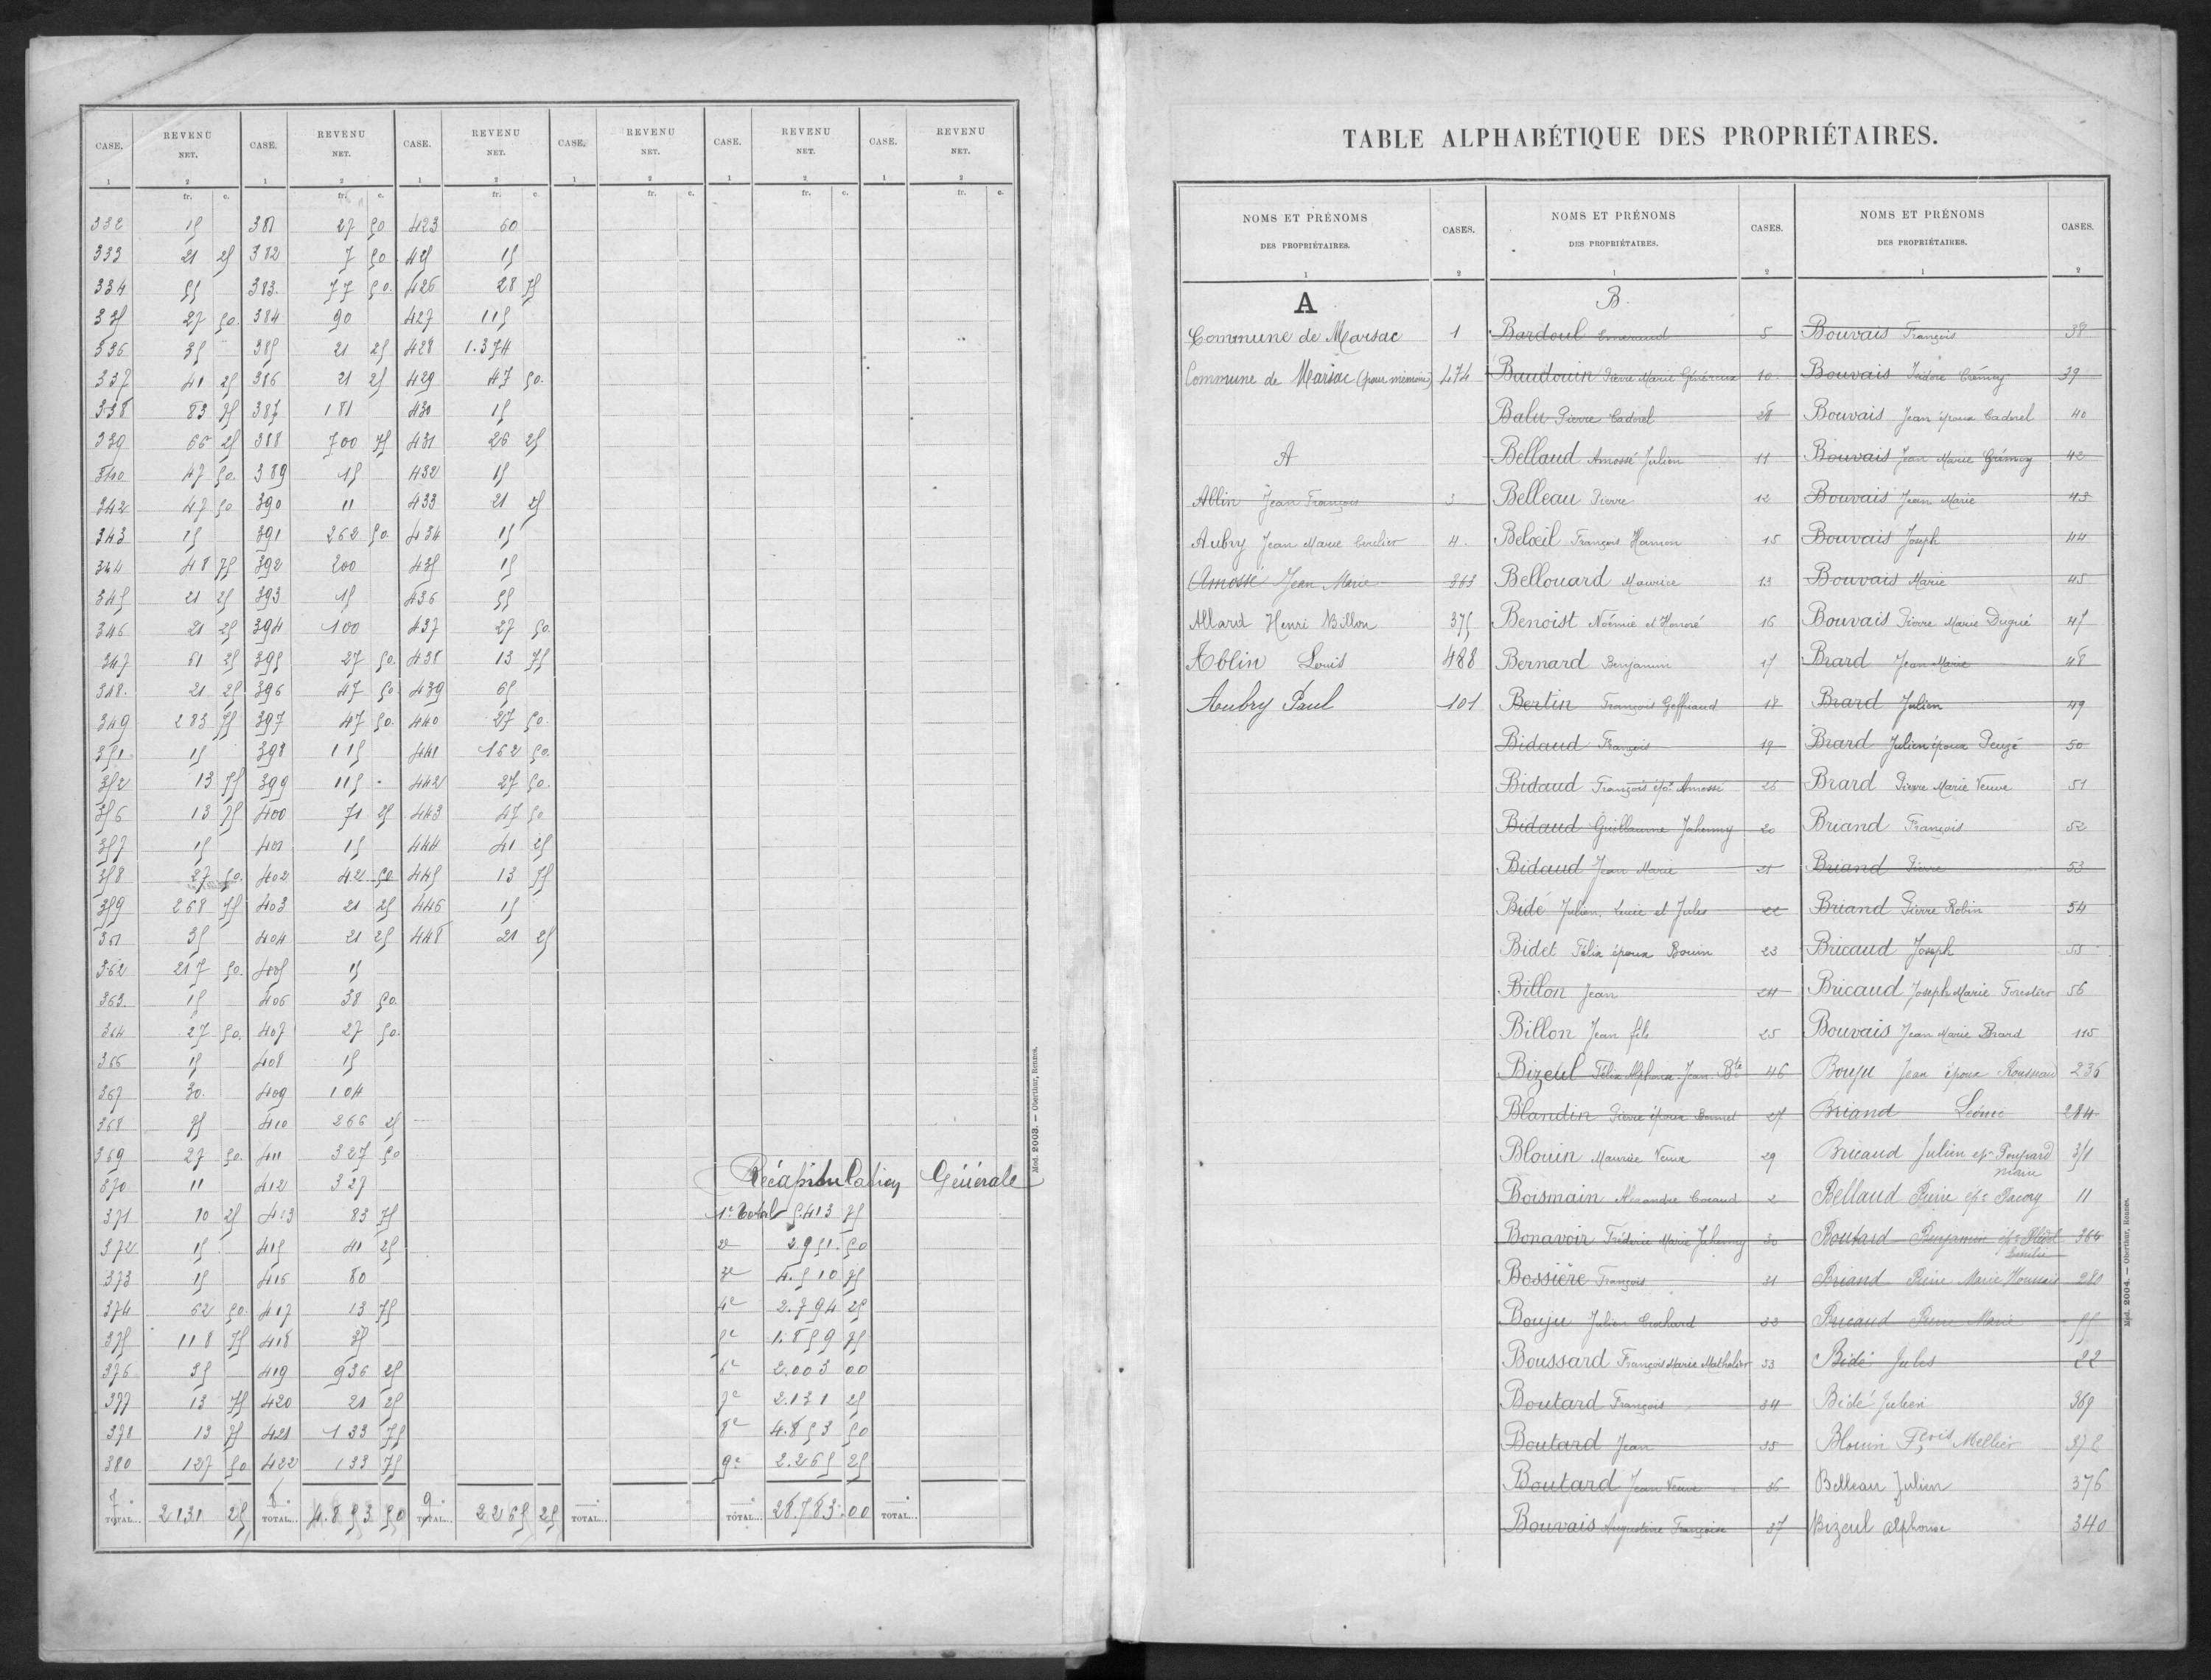 CASE. REVENU NET. CASE. REVENU NET. CASE. REVENU NET. CASE. REVENU NET. CASE. REVENU NET. CASE. REVENU NET.
1 2 1 2 1 2 1 2 1 2 1 2
fr. c. fr. c. fr. c. fr. c. fr. c. fr. c.
332 15 381 27 50 423 60
333 21 25 382 7 50 425 15
334 55 383. 77 50. 426 28 75
335 27 50. 384 90 427 115
336 35 385 21 25 428 1.374
337 41 25 386 21 25 429 47 50.
338 83 75 387 181 430 15
339 66 25 388 700 75 431 26 25
340 47 50. 389 15 432 15
342 47 50 390 11 433 21 25
343 15 391 262 50. 434 15
344 48 75 392 200 435 15
345 21 25 393 15 436 55
346 21 25 394 100 437 27 50.
347 61 25 395 27 50. 438 13 75
348. 21 25 396 47 50 439 65
349 283 75 397 47 50. 440 27 50.
351 15 398 115 441 162 50.
352 13 75 399 115 442 27 50.
356 13 75 400 71 25 443 47 50
357 15 401 15 444 41 25
358 27 50. 402 42 50 445 13 75
359 268 75 403 21 25 446 15
361 35 404 21 25 448 21 25
362 217 50. 405 15
363. 15 406 38 50.
364 27 50. 407 27 50.
366 15 408 15
367 30. 409 104
368 75 410 266 25
369 27 50. 411 327 50
370 11 412 327
Récapitulation Générale
371 10 25 413 83 75 1er Total 5.413 75
372 15 415 41 25 2e 2951. 50
373 15 416 80 3e 4.510 75
374 62 50. 417 13 75 4e 2.794 25
375 118 75 418 35 5e 1.859 75
376 35 419 936 25 6e 2.003 00
377 13 75 420 21 25 7e 2.131 25
378 13 75 421 133 75 8e 4.853 50
380 127 50 422 133 75 9e 2.265 25
7e TOTAL... 2131 25 8e TOTAL... 4.853 50 9e TOTAL... 2265 25 TOTAL... TOTAL... 28.783.00 TOTAL...
Mod. 2003. — Oberthur, Rennes.
TABLE ALPHABÉTIQUE DES PROPRIÉTAIRES.
NOMS ET PRÉNOMS DES PROPRIÉTAIRES. CASES.
1 2
A
Commune de Marsac 1
Commune de Marsac (pour mémoire) 474
A
Ablin Jean François 3
Aubry Jean Marie 4.
Amossé Jean Marie 363
Allard Henri Billon 375
Ablin Louis 488
Aubry Paul 101
NOMS ET PRÉNOMS DES PROPRIÉTAIRES. CASES.
1 2
B.
Bardoul 5
Baudouin Pierre Marie Généreux 10
Balu Pierre Cadorel 28
Bellaud Amossé Julien 11
Belleau Pierre 12
Belœil François Hamon 15
Bellouard Maurice 13
Benoist Noémie et Honoré 16
Bernard Benjamin 17
Bertin François Geffriaud 18
Bidaud François 19
Bidaud François épx Amossé 26
Bidaud Guillaume Jahenny 20
Bidaud Jean Marie 21
Bidé Julien, Lucie et Jules 22
Bidet Félix époux Bouin 23
Billon Jean 24
Billon Jean fils 25
Bizeul Félix Alphonse Jean Bte 46
Blandin Pierre époux Bonnet 27
Blouin Maurice Veuve 29
Boismain Alexandre Cocaud 2
Bonavoir Frédéric Marie Jahenny 30
Bossière François 31
Bouju Julien Crochard
Boussard François Marie Mathelier 33
Boutard François 34
Boutard Jean 35
Boutard Jean Veuve 36
Bouvais Augustine Françoise 37
NOMS ET PRÉNOMS DES PROPRIÉTAIRES. CASES.
1 2
Bouvais François 38
Bouvais Isidore Crémoy 39
Bouvais Jean époux Cadorel 40
Bouvais Jean Marie 42
Bouvais Jean Marie 43
Bouvais Joseph 44
Bouvais Marie 45
Bouvais Pierre Marie Dugué 47
Brard Jean Marie 48
Brard Julien 49
Brard Julien époux Peuzé 50
Brard Pierre Marie Veuve 51
Briand François 52
Briand Pierre 53
Briand Pierre Robin 54
Bricaud Joseph 55
Bricaud Joseph Marie Forestier 56
Bouvais Jean Marie Brard 115
Bouju Jean époux 236
Briand Léonie 284
Bricaud Julien epx Poupard 351
Bellaud Pierre épx Pacory 11
Boutard Benjamin 366
Briand Pierre Marie 280
Bricaud Pierre Marie 55
Bidé Jules 22
Bidé Julien 369
Blouin Fçois Mellier 372
Belleau Julien 376
Bizeul alphonse 340
Mod. 2004. — Oberthur, Rennes.